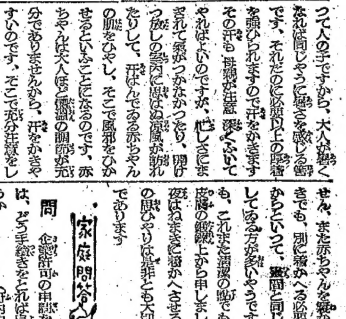 つて人の子ですから、大人が暑く
なれば同じやうに暑さを感じる筈
です、それだのに必要以上の厚着
を強ひられますので汗をかきます
その汗も母親が注意深くふいて
やればよいのですが、忙しさにま
ぎれて氣がつかなかつたり、開け
つ放しの窓に思はぬ涼風が訪れ
たりして、汗ばんでゐる赤ちやん
の肌をひやし、そこで風邪をひか
せるといふことになるのです、赤
ちやんは大人ほど體温の調節が充
分でありませんから、汗をかきや
すいのです、そこで充分注意をし
せん、また赤ちやんを寝か
きでも、別に着かへる必要
からといつて、晝間と同じ
してゐる方が多いやうです
も、これまた清潔の點でも
皮膚の鍛錬上から申しまし
夜はねまきに着かへさせる
の思ひやりは是非とも大切
であります
家庭問答
問 企業許可の申請な
は、どう手續きをとれば良